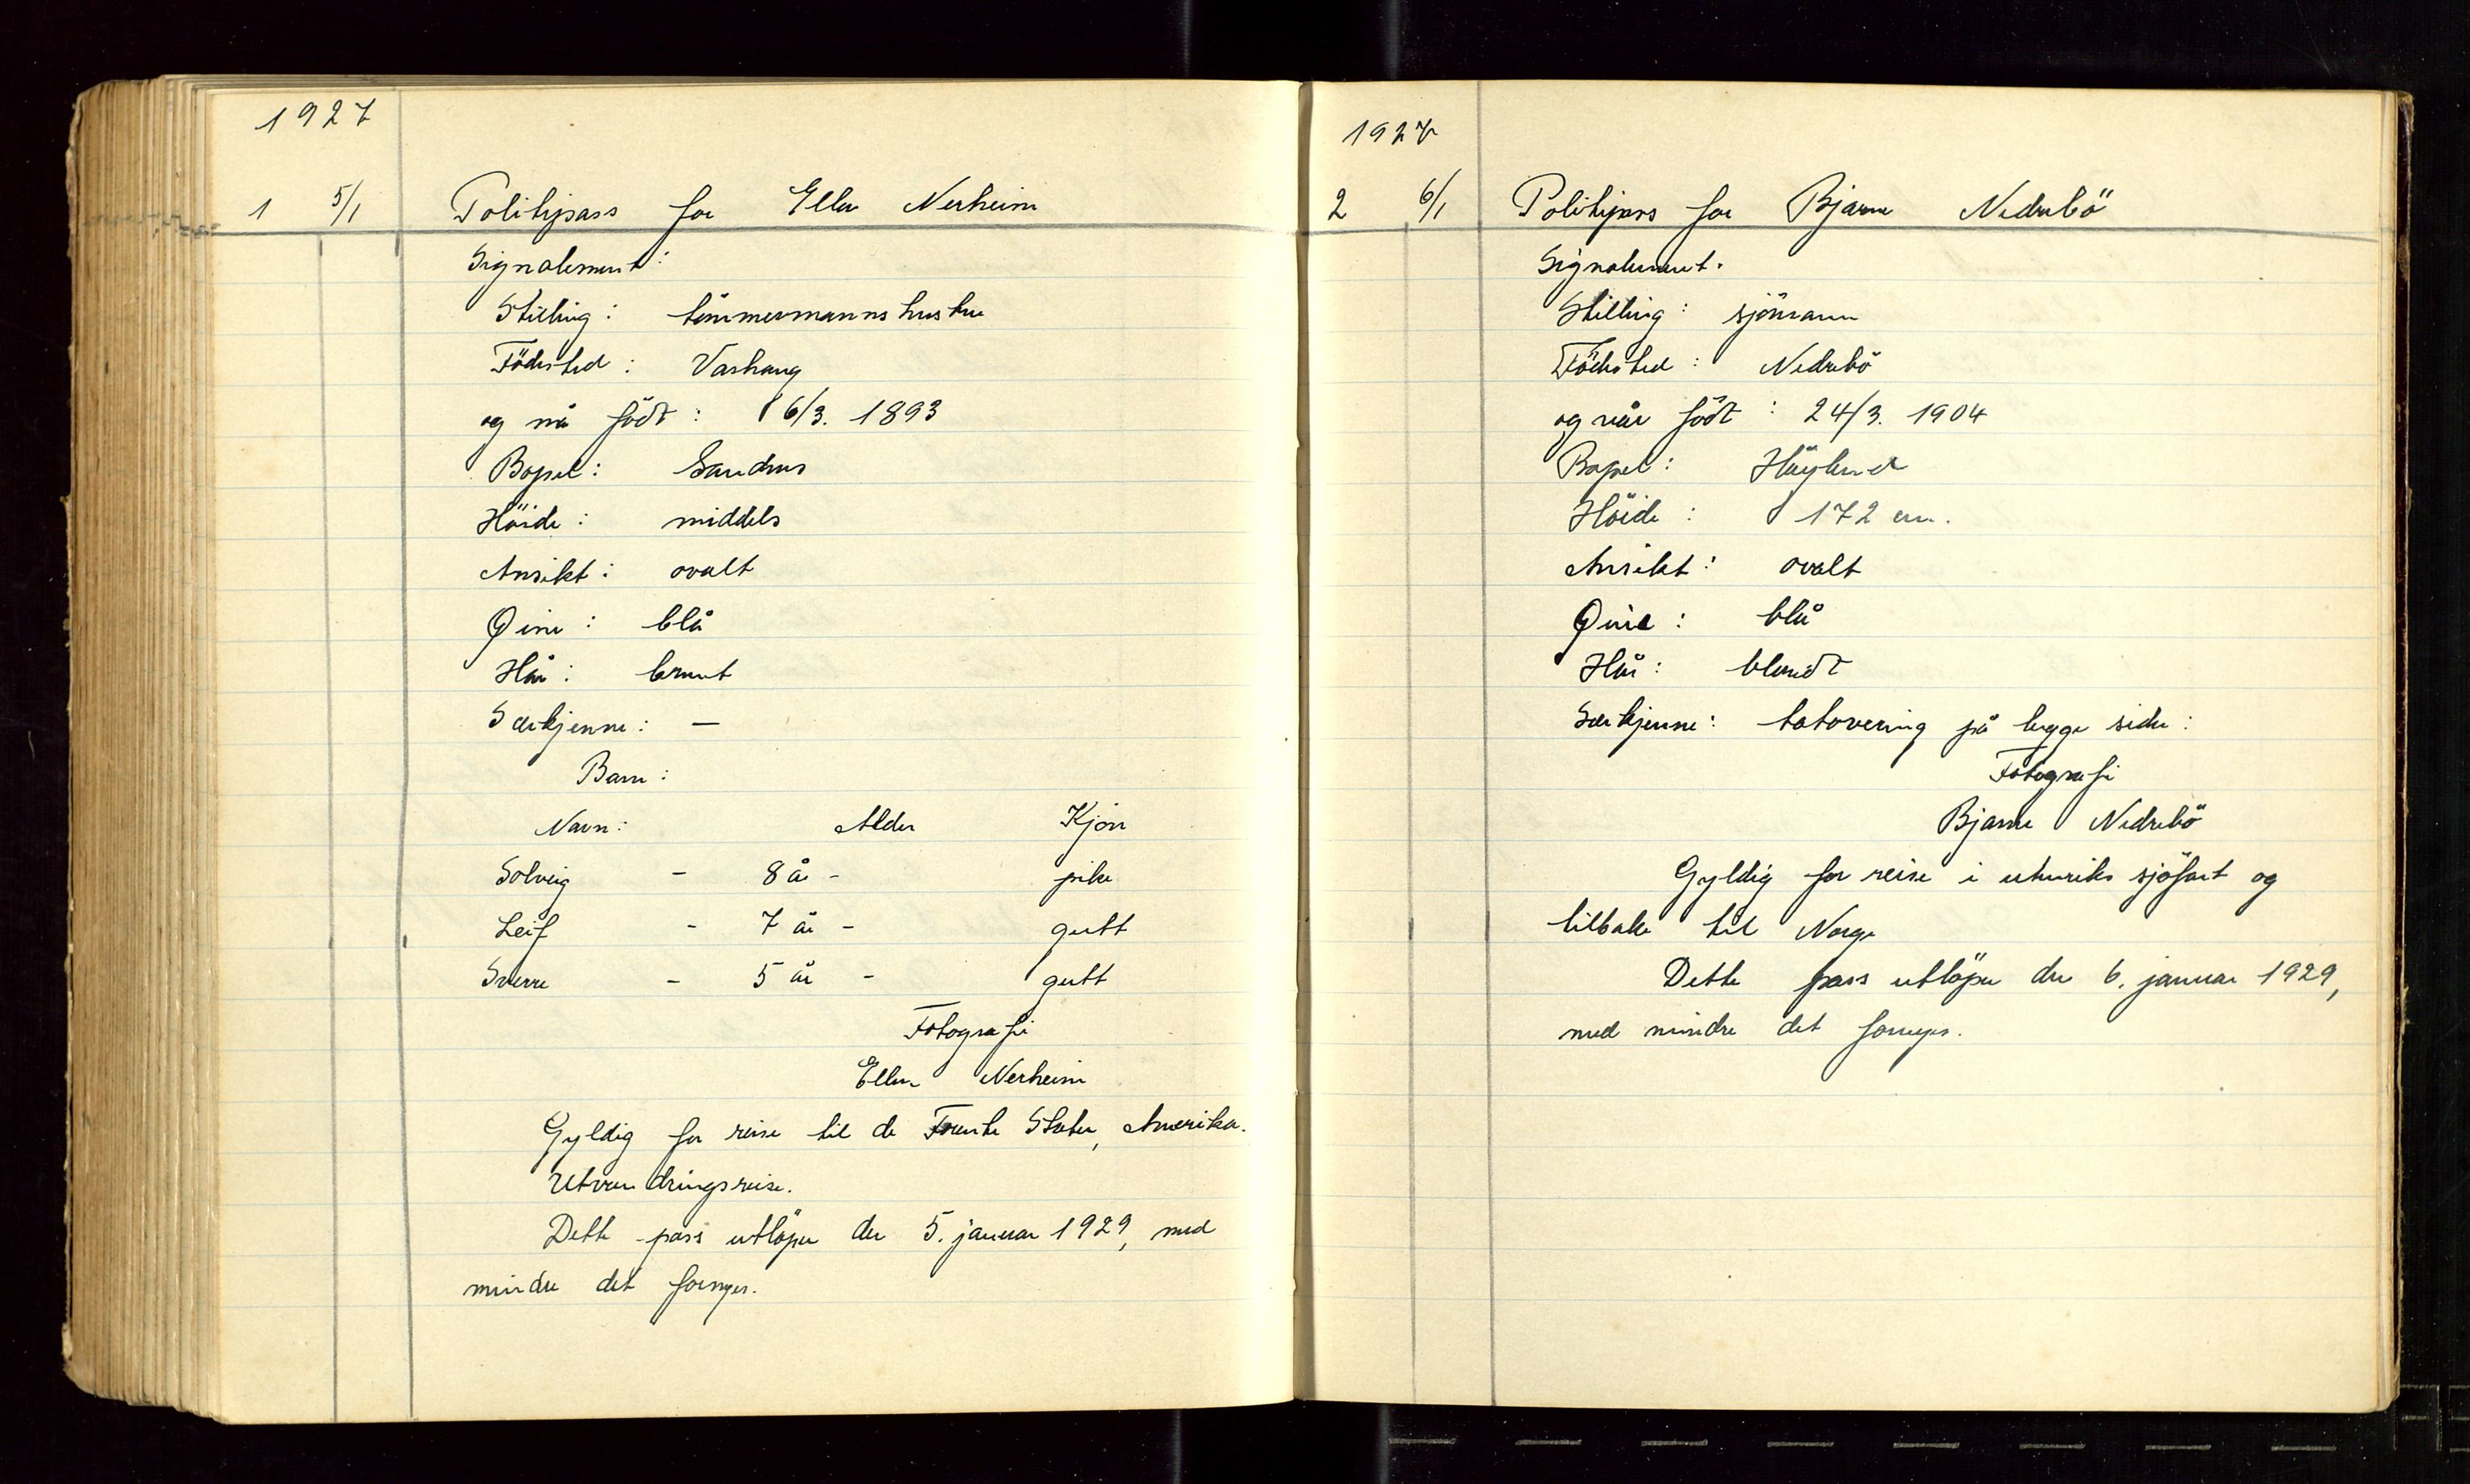 1927
1 5/1 Politipass for Ellen Nerheim
Signalement:
Stilling: tömmermannshustru
Födested: Varhaug
og når född: 6/3. 1893
Bopel: Sandnes
Höide: middels
Ansikt: ovalt
Øine: blå
Hår: brunt
Særkjenne: —
Barn:
Navn: Alder Kjön
Solveig - 8 år - pike
Leif - 7 år - gutt
Sverre - 5 år - gutt
Fotografi
Ellen Nerheim
Gyldig for reise til de Forente Stater, Amerika.
Utvandringsreise.
Dette pass utlöper den 5. januar 1929, med
mindre det fornyes.
1927
2 6/1 Politipass for Bjarne Nedrebö
Signalement.
Stilling: sjömann
Födested: Nedrebö
og når född: 24/3. 1904
Bopel:
Höide: 172 cm.
Ansikt: ovalt
Øine: blå
Hår: blondt
Særkjenne: tatovering på begge sider:
Fotografi
Bjarne Nedrebö
Gyldig for reise i utenriks sjöfart og
tilbake til Norge
Dette pass utlöper den 6. januar 1929,
med mindre det fornyes.